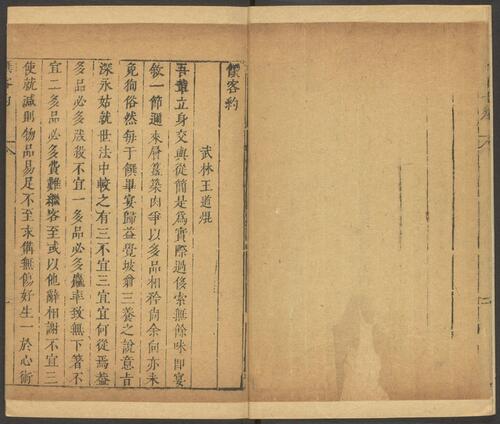 饌客約
武林王道焜
吾輩立身交與從簡是為實際過侈索無餘味即宴
飲一節邇來層簋纍肉爭以多品相矜尚余向亦未
免狥俗然每于饌畢宴歸益覺坡翁三養之說意旨
深永姑就世法中較之有三不宜三宜宜何從焉葢
多品必多殘殺不宜一多品必多麤率致無下箸不
宜二多品必多費難繼客至或以他辭相謝不宜三
使就減則物品易足不至求備無傷好生一於心術
饌客約
一